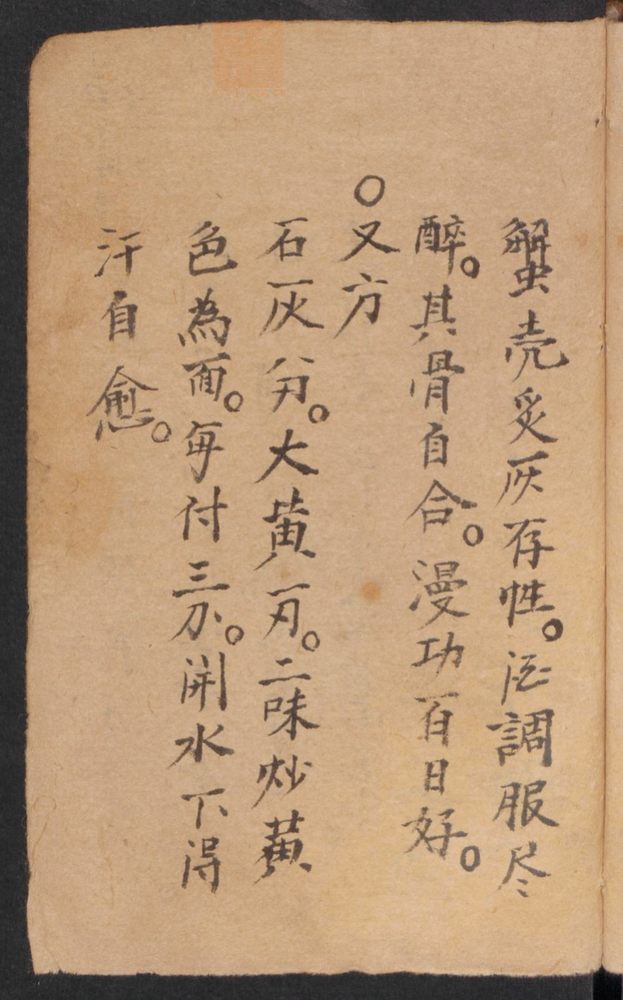 蟹壳炙灰存性。酒調服尽
醉。其骨自合。漫功百日好。
○又方
石灰八刄。大黄一刄。二味炒黄
色為面。每付三分。開水下得
汗自愈。